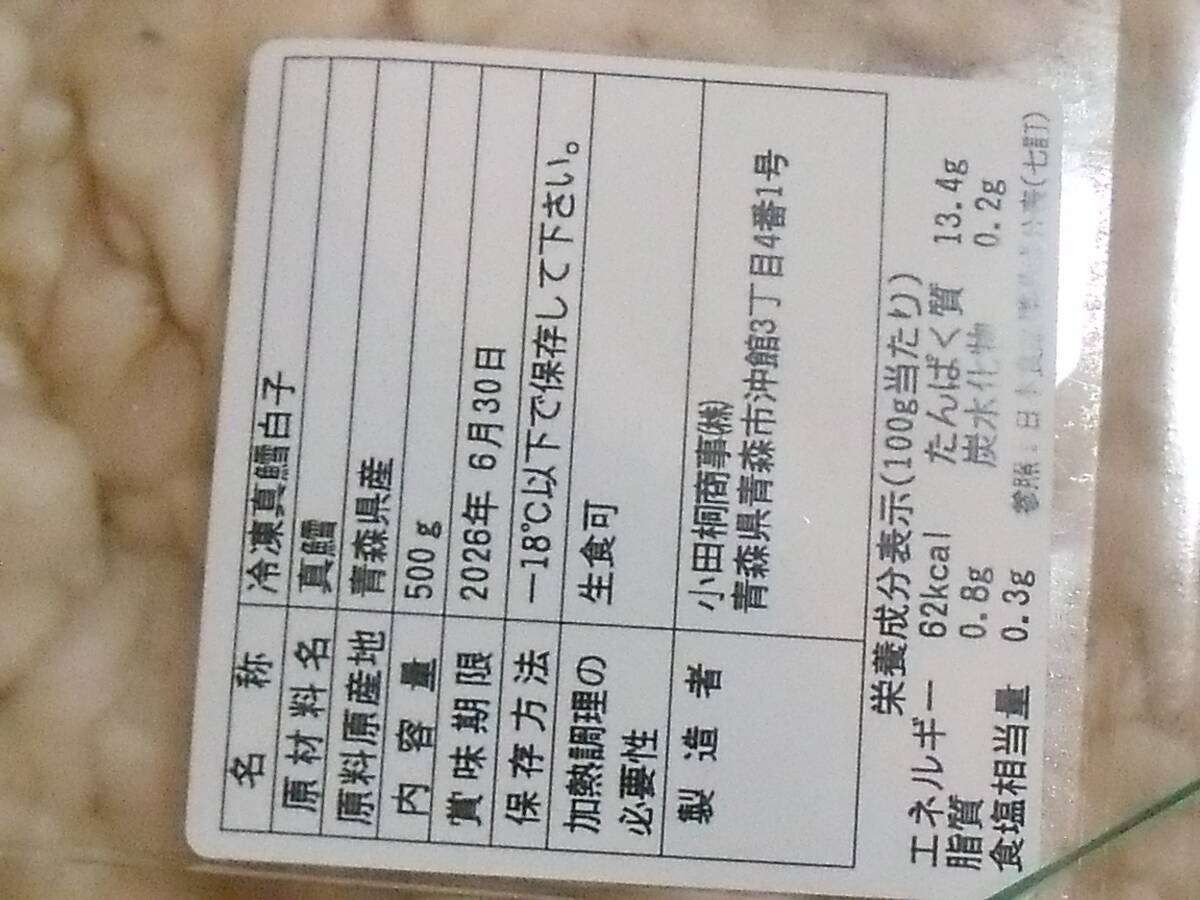 名称 冷凍真鱈白子
原材料名 真鱈
原料原産地 青森県産
内容量 500g
賞味期限 2026年 6月30日
保存方法 −18℃以下で保存して下さい。
加熱調理の 生食可
必要性
製造者 小田桐商事㈱
青森県青森市沖館3丁目4番1号
栄養成分表示(100g当たり)
エネルギー 62kcal たんぱく質 13.4g
脂質 0.8g 炭水化物 0.2g
食塩相当量 0.3g
参照:日本食品 (七訂)